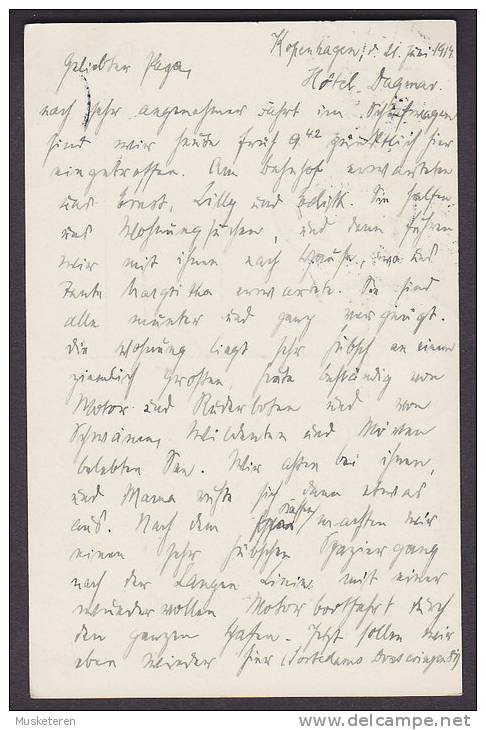 Kopenhagen, d. 21. Juni 1914
Geliebter Papa,
Hôtel Dagmar.
nach sehr angenehmer Fahrt im Schlafwagen
sind wir heute früh 9 42 pünktlich hier
eingetroffen. Am Bahnhof erwarteten
uns Ernst, Lilly und Edith. Sie halfen
uns Wohnungsuchen, und dann fuhren
wir mit ihnen nach Hause, wo uns
Tante Margitha erwartete. Sie sind
alle munter und ganz vergnügt.
Die Wohnung liegt sehr hübsch an einem
ziemlich grossen, heute beständig von
Motor und Ruderboten und von
Schwänen, Wildenten und Möwen
belebten See. Wir assen bei ihnen,
und Mama ruhte sich dann etwas
aus. Nach dem Kaffee machten wir
einen sehr hübschen Spaziergang
nach der Langen Linie mit einer
wundervollen Motorbootfahrt durch
den ganzen Hafen. Jetzt sollen wir
eben wieder hier (Sortedams
Musketeren http://www.delcampe.net